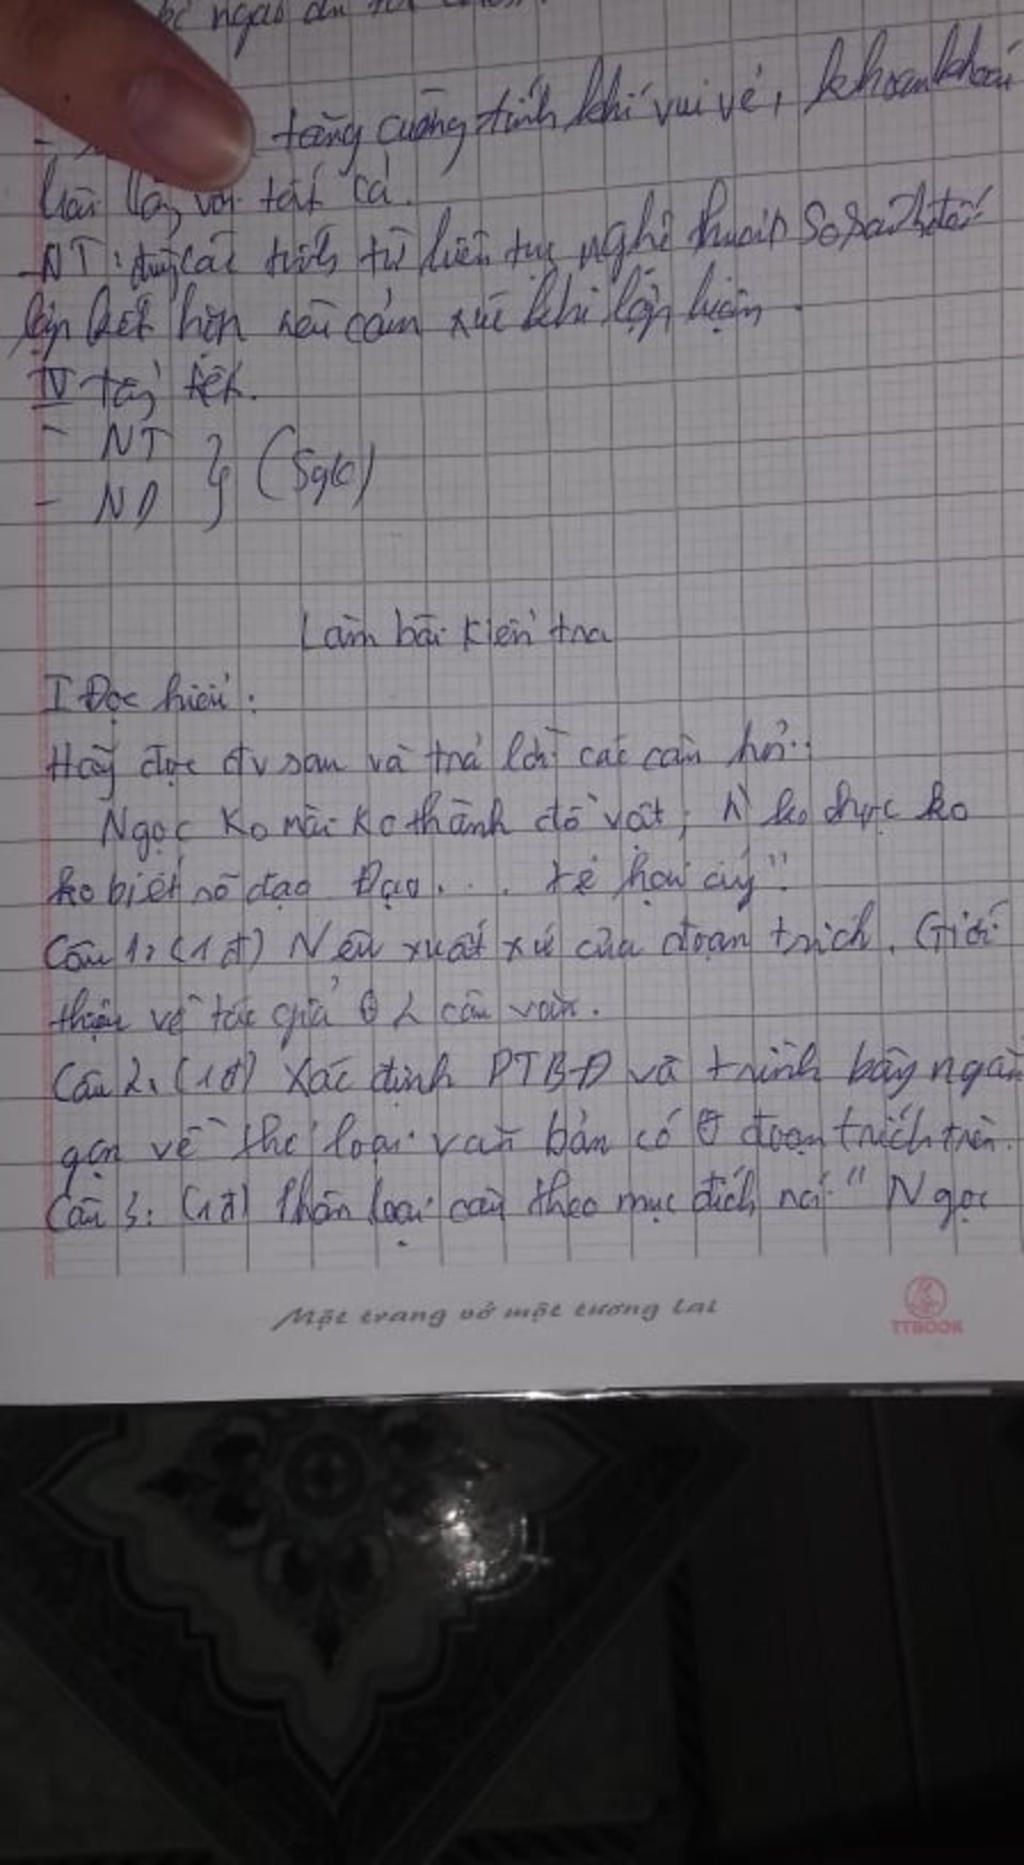 ngao du
tăng cường tính khí vui vẻ, khoan khoái
hài lòng với tất cả.
- NT: dùng các tính từ liên tục nghệ thuật so sánh đối
lập kết hợp nêu cảm xúc khi lập luận.
IV tổng kết.
- NT
- ND } (Sgk)
Làm bài kiểm tra
I Đọc hiểu:
Hãy đọc đv sau và trả lời các câu hỏi:
Ngọc ko mài ko thành đồ vật; ko học ko
ko biết rõ đạo Đạo... tệ hại ấy".
Câu 1: (1đ) Nêu xuất xứ của đoạn trích. Giới
thiệu về tác giả 2 câu văn.
Câu 2. (1đ) Xác định PTBĐ và trình bày ngắn
gọn về thể loại văn bản có đoạn trích trên.
Câu 3: (1đ) Phân loại câu theo mục đích nói "Ngọc
Một trang vở một tương lai
TTBOOK